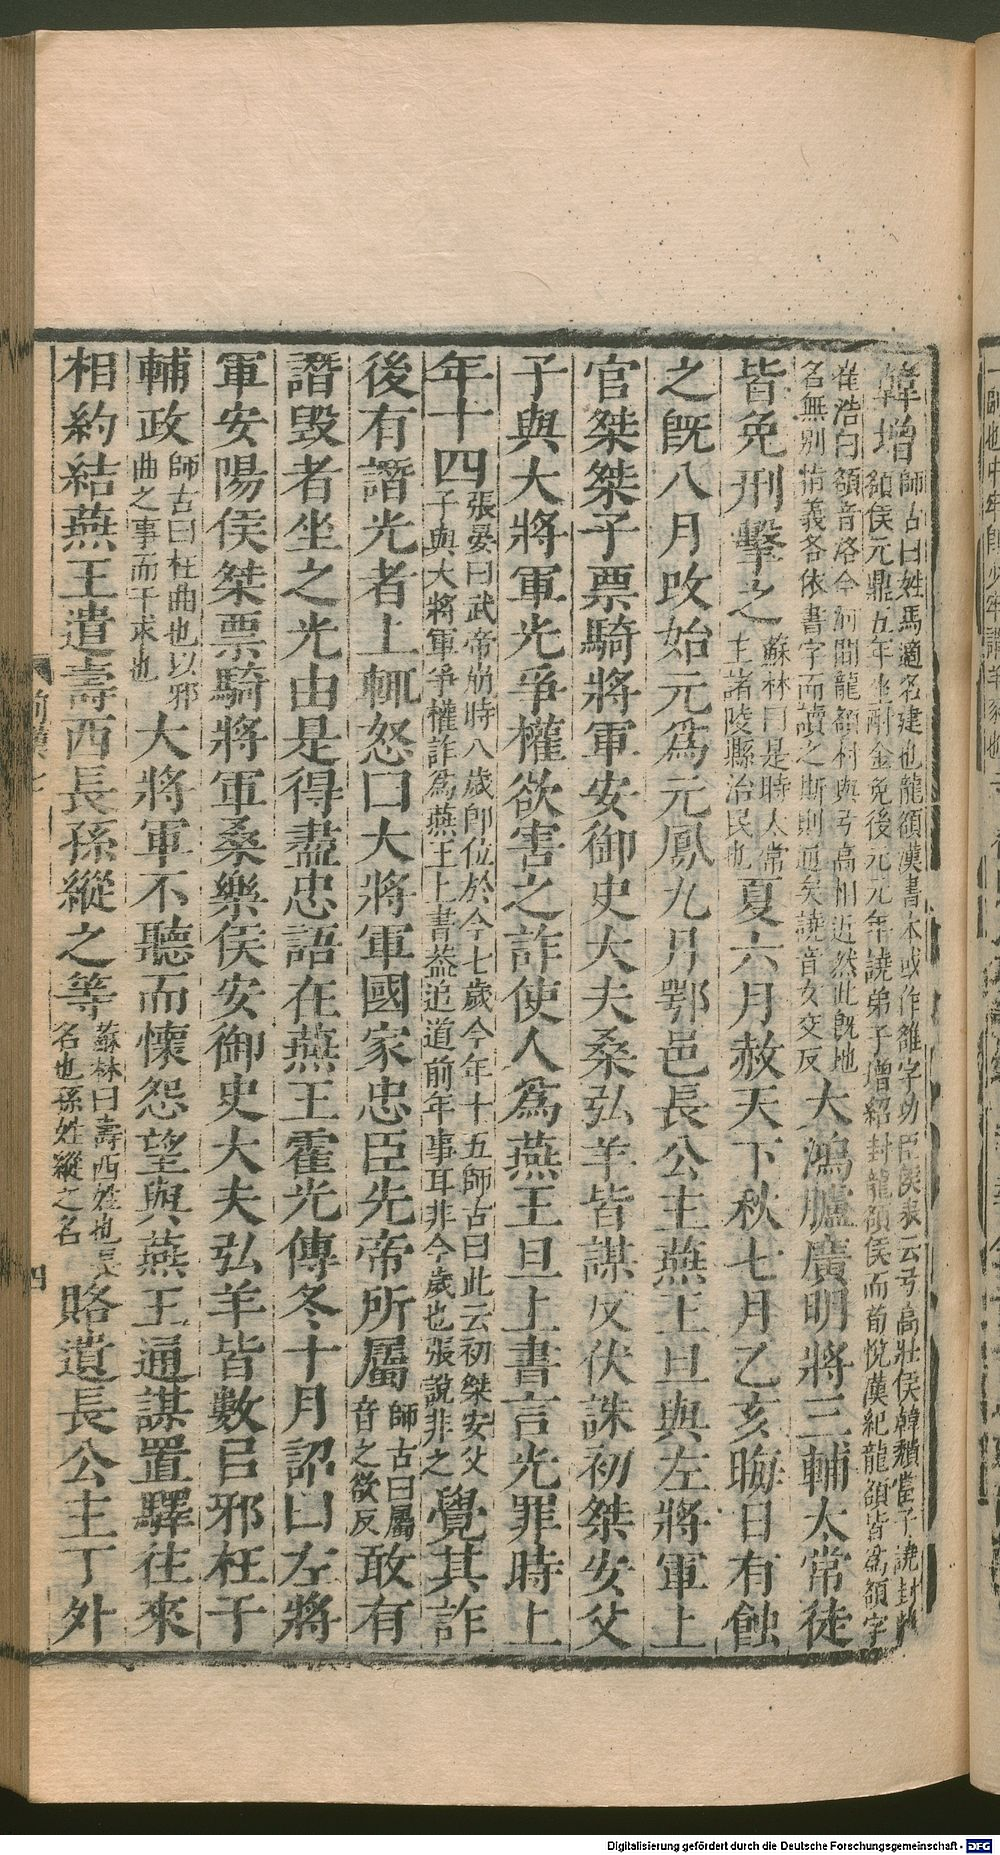 韓增師古曰姓馬適名建也龍頟漢書本或作雒字功臣侯表云弓高壯侯韓頹當子譊封龍
頟侯元鼎五年坐酎金免後元元年譊弟子增紹封龍頟侯而荀悅漢紀龍頟皆爲頟字
崔浩曰頟音洛今河間龍頟村與弓高相近然此旣地
名無別指義各依書字而讀之斯則通矣譊音女交反大鴻臚廣明將三輔太常徒
皆免刑擊之蘇林曰是時太常
主諸陵縣治民也夏六月赦天下秋七月乙亥晦日有蝕
之旣八月攺始元爲元鳳九月鄂邑長公主燕王旦與左將軍上
官桀桀子票騎將軍安御史大夫桑弘羊皆謀反伏誅初桀安父
子與大將軍光爭權欲害之詐使人爲燕王旦上書言光罪時上
年十四張晏曰武帝崩時八歲卽位於今七歲今年十五師古曰此云初桀安父
子與大將軍爭權詐爲燕王上書葢追道前年事耳非今歲也張說非之覺其詐
後有譖光者上輒怒曰大將軍國家忠臣先帝所屬師古曰屬
音之欲反敢有
譖毀者坐之光由是得盡忠語在燕王霍光傳冬十月詔曰左將
軍安陽侯桀票騎將軍桑樂侯安御史大夫弘羊皆數㠯邪枉干
輔政師古曰枉曲也以邪
曲之事而干求也大將軍不聽而懷怨望與燕王通謀置驛往來
相約結燕王遣壽西長孫縱之等蘇林曰壽西姓也長
名也孫姓縱之名賂遺長公主丁外
四
Digitalisierung gefördert durch die Deutsche Forschungsgemeinschaft - DFG